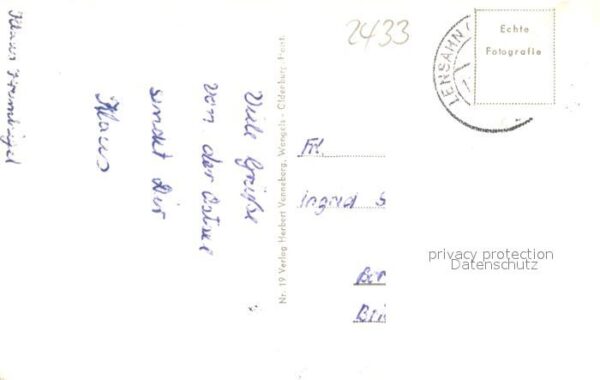 2433
LENSAHN
Echte
Fotografie
Viele Grüße
von der Ostsee
sendet Dir
Klaus
Klaus
Nr. 19 Verlag Herbert Vonneberg, Wangels - Oldenburg, Holst.
Frl.
Ingrid S
privacy protection
Datenschutz